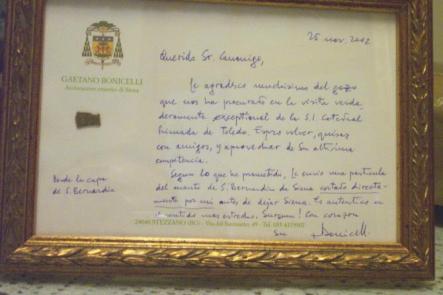 25 nov. 2002
GAETANO BONICELLI
Arcivescovo emerito di Siena
Querido Sr. Canonigo,
Le agradezco muchisimo del gozo
que nos ha procurado en la visita verda-
deramente exceptional de la S.I. Catedral
Primada de Toledo. Espero volver, quizas
con amigos, y aprovechar de Su altisima
competencia.
Segun lo que he prometido, Le envio una particula
del manto de S. Bernardin de Siena cortado directa-
mente por mi antes de dejar Siena. Es autentico en
sentido mas estrecho. Con corazon
Desde la capa
de S. Bernardin
24040 STEZZANO (BG) - Via del Santuario, 49 - Tel.
Su Bonicelli